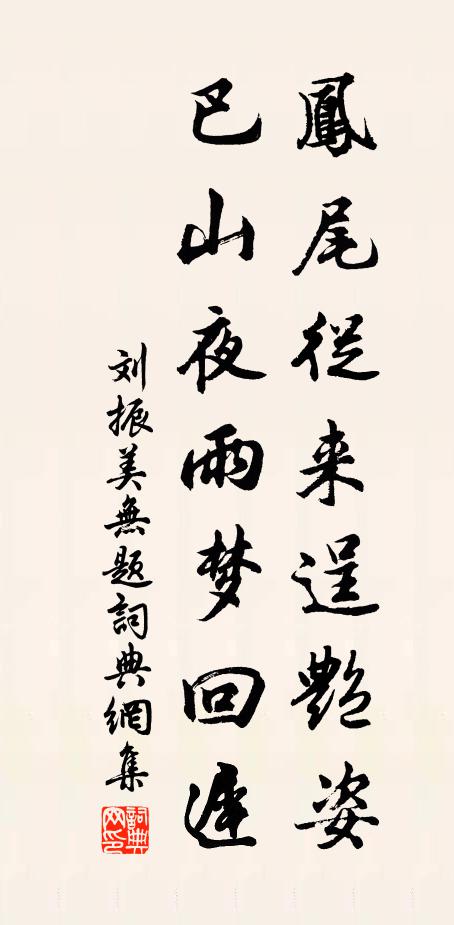 鳳尾從来逞艷姿
巴山夜雨梦回遲
刘振美無題詞典網集
詞典网印